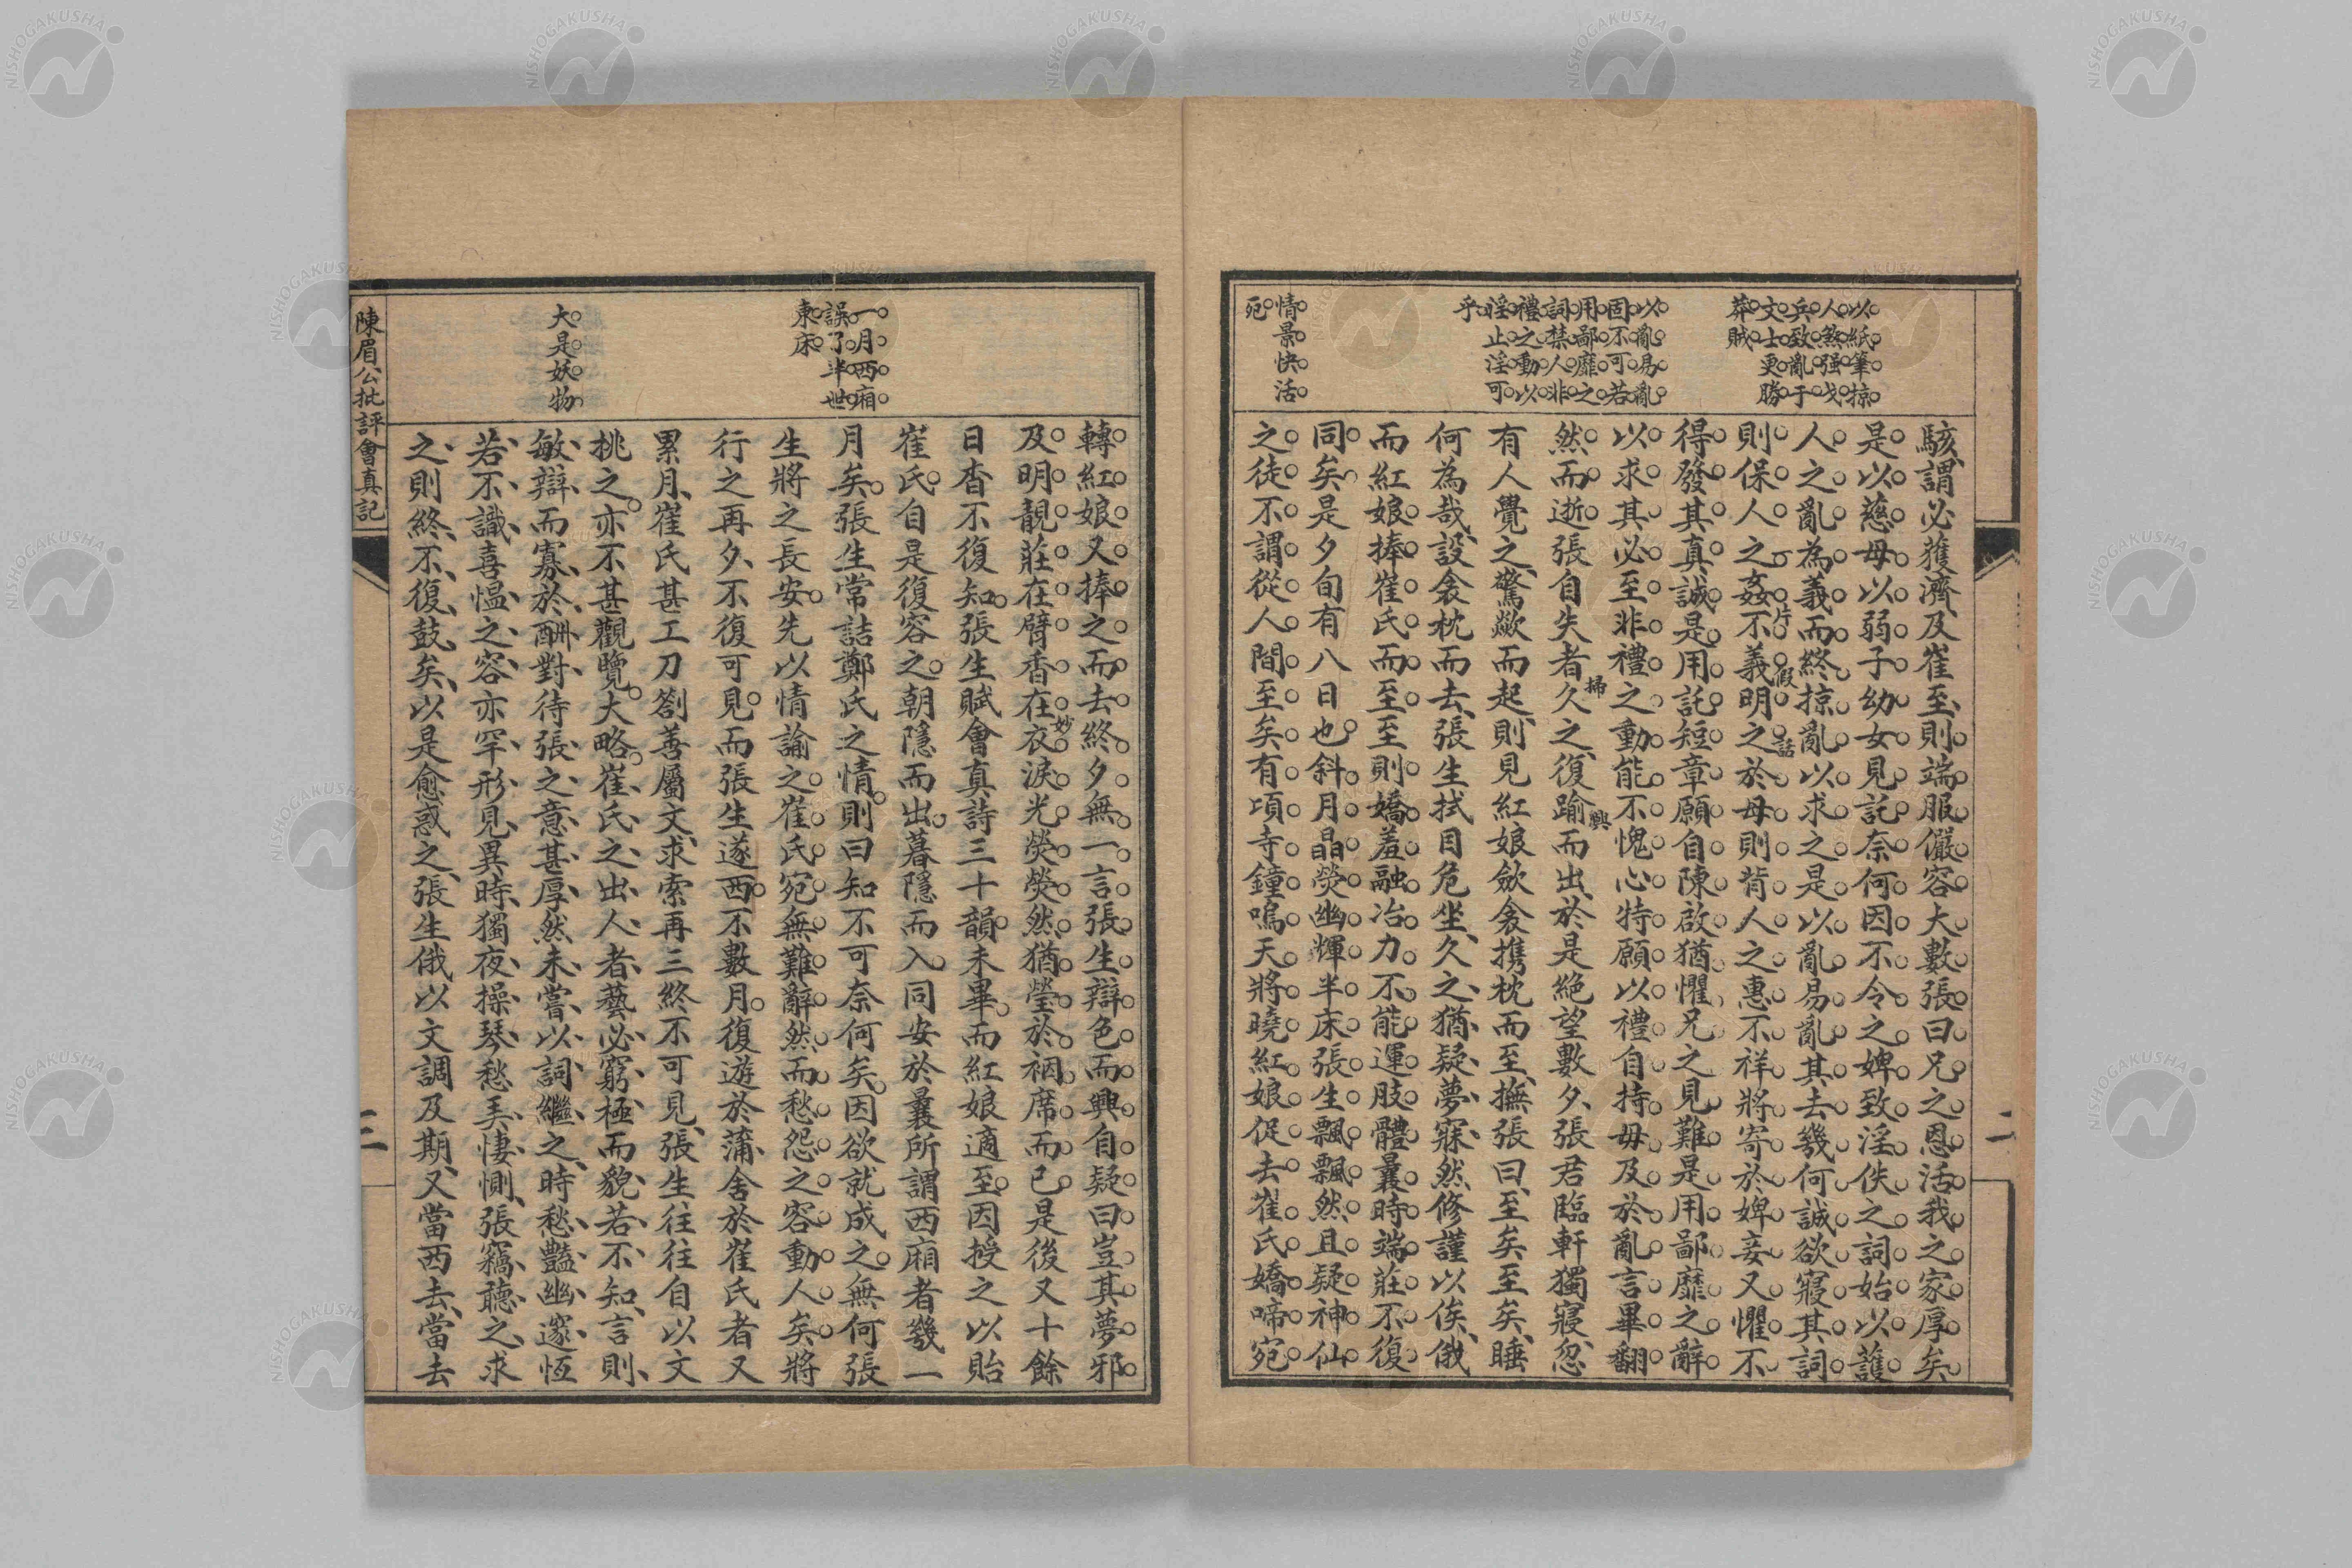 以紙筆掠
人煞强戈
兵致亂于
文士更勝
莽賊
以亂易亂
固不可若
用鄙靡之
詞禁人非
禮之動以
淫止淫可
乎
情景快活
死
駭謂必獲濟及崔至則端服儼容大數張曰兄之恩活我之家厚矣
是以慈母以弱子幼女見託奈何因不令之婢致淫佚之詞始以護
人之亂為義而終掠亂以求之是以亂易亂其去幾何誠欲寢其詞
則保人之姦不義明之於母則背人之惠不祥將寄於婢妾又懼不
片假話
得發其真誠是用託短章願自陳啟猶懼兄之見難是用鄙靡之辭
以求其必至非禮之動能不愧心特願以禮自持毋及於亂言畢翻
掃興
然而逝張自失者久之復踰而出於是絕望數夕張君臨軒獨寢忽
有人覺之驚歘而起則見紅娘歛衾携枕而至撫張曰至矣至矣睡
何為哉設衾枕而去張生拭目危坐久之猶疑夢寐然修謹以俟俄
而紅娘捧崔氏而至至則嬌羞融冶力不能運肢體曩時端莊不復
同矣是夕旬有八日也斜月晶熒幽輝半床張生飄飄然且疑神仙
之徒不謂從人間至矣有項寺鐘鳴天將曉紅娘促去崔氏嬌啼宛
二
一月西廂
誤了半世
東床
大是妖物
轉紅娘又捧之而去終夕無一言張生辯色而興自疑曰豈其夢邪
及明靚莊在臂香在衣淚光熒熒然猶瑩於裀席而已是後又十餘
妙
日杳不復知張生賦會真詩三十韻未畢而紅娘適至因授之以貽
崔氏自是復容之朝隱而出暮隱而入同安於曩所謂西廂者幾一
月矣張生常詰鄭氏之情則曰知不可奈何矣因欲就成之無何張
生將之長安先以情諭之崔氏宛無難辭然而愁怨之容動人矣將
行之再夕不復可見而張生遂西不數月復遊於蒲舍於崔氏者又
累月崔氏甚工刀劄善屬文求索再三終不可見張生往往自以文
桃之亦不甚觀覽大略崔氏之出人者藝必窮極而貌若不知言則
敏辯而寡於酬對待張之意甚厚然未嘗以詞繼之時愁豔幽邃恆
若不識喜愠之容亦罕形見異時獨夜操琴愁美悽惻張竊聽之求
之則終不復鼓矣以是愈惑之張生俄以文調及期又當西去當去
陳眉公批評會真記
三